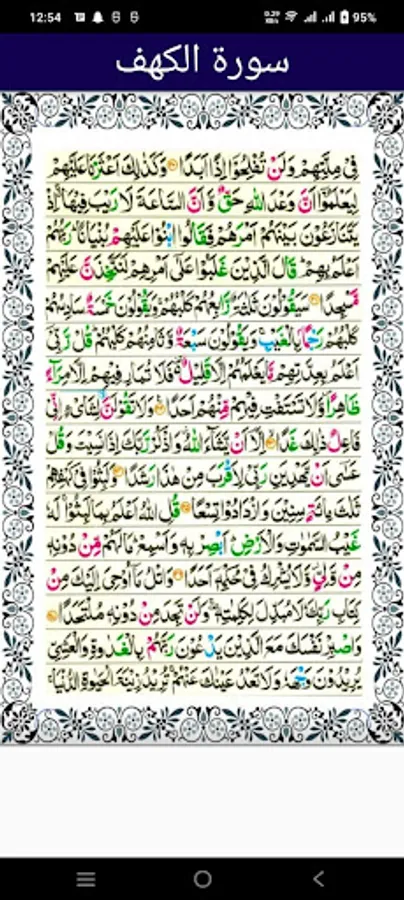 12:54
95%
سورة الكهف
فِيْ مِلَّتِهِمْ وَلَنْ تُفْلِحُوْٓا اِذًا اَبَدًا وَكَذٰلِكَ اَعْثَرْنَا عَلَيْهِمْ
لِيَعْلَمُوْٓا اَنَّ وَعْدَ اللّٰهِ حَقٌّ وَّ اَنَّ السَّاعَةَ لَا رَيْبَ فِيْهَا اِذْ
يَتَنَازَعُوْنَ بَيْنَهُمْ اَمْرَهُمْ فَقَالُوا ابْنُوْا عَلَيْهِمْ بُنْيَانًا رَبُّهُمْ
اَعْلَمُ بِهِمْ قَالَ الَّذِيْنَ غَلَبُوْا عَلٰٓى اَمْرِهِمْ لَنَتَّخِذَنَّ عَلَيْهِمْ
مَّسْجِدًا سَيَقُوْلُوْنَ ثَلٰثَةٌ رَّابِعُهُمْ كَلْبُهُمْ وَيَقُوْلُوْنَ خَمْسَةٌ سَادِسُهُمْ
كَلْبُهُمْ رَجْمًا بِالْغَيْبِ وَيَقُوْلُوْنَ سَبْعَةٌ وَّ ثَامِنُهُمْ كَلْبُهُمْ قُلْ رَّبِّيْٓ
اَعْلَمُ بِعِدَّتِهِمْ مَّا يَعْلَمُهُمْ اِلَّا قَلِيْلٌ فَلَا تُمَارِ فِيْهِمْ اِلَّا مِرَآءً
ظَاهِرًا وَّلَا تَسْتَفْتِ فِيْهِمْ مِّنْهُمْ اَحَدًا وَلَا تَقُوْلَنَّ لِشَايْءٍ اِنِّيْ
فَاعِلٌ ذٰلِكَ غَدًا اِلَّآ اَنْ يَّشَآءَ اللّٰهُ وَاذْكُرْ رَّبَّكَ اِذَا نَسِيْتَ وَقُلْ
عَسٰٓى اَنْ يَّهْدِيَنِ رَبِّيْ لِاَقْرَبَ مِنْ هٰذَا رَشَدًا وَلَبِثُوْا فِيْ كَهْفِهِمْ
ثَلٰثَ مِائَةٍ سِنِيْنَ وَازْدَادُوْا تِسْعًا قُلِ اللّٰهُ اَعْلَمُ بِمَا لَبِثُوْا لَهٗ
غَيْبُ السَّمٰوٰتِ وَالْاَرْضِ اَبْصِرْ بِهٖ وَاَسْمِعْ مَا لَهُمْ مِّنْ دُوْنِهٖ
مِنْ وَّلِيٍّ وَّلَا يُشْرِكُ فِيْ حُكْمِهٖٓ اَحَدًا وَاتْلُ مَآ اُوْحِيَ اِلَيْكَ مِنْ
كِتَابِ رَبِّكَ لَا مُبَدِّلَ لِكَلِمٰتِهٖ وَلَنْ تَجِدَ مِنْ دُوْنِهٖ مُلْتَحَدًا
وَاصْبِرْ نَفْسَكَ مَعَ الَّذِيْنَ يَدْعُوْنَ رَبَّهُمْ بِالْغَدٰوةِ وَالْعَشِيِّ
يُرِيْدُوْنَ وَجْهَهٗ وَلَا تَعْدُ عَيْنٰكَ عَنْهُمْ تُرِيْدُ زِيْنَةَ الْحَيٰوةِ الدُّنْيَا